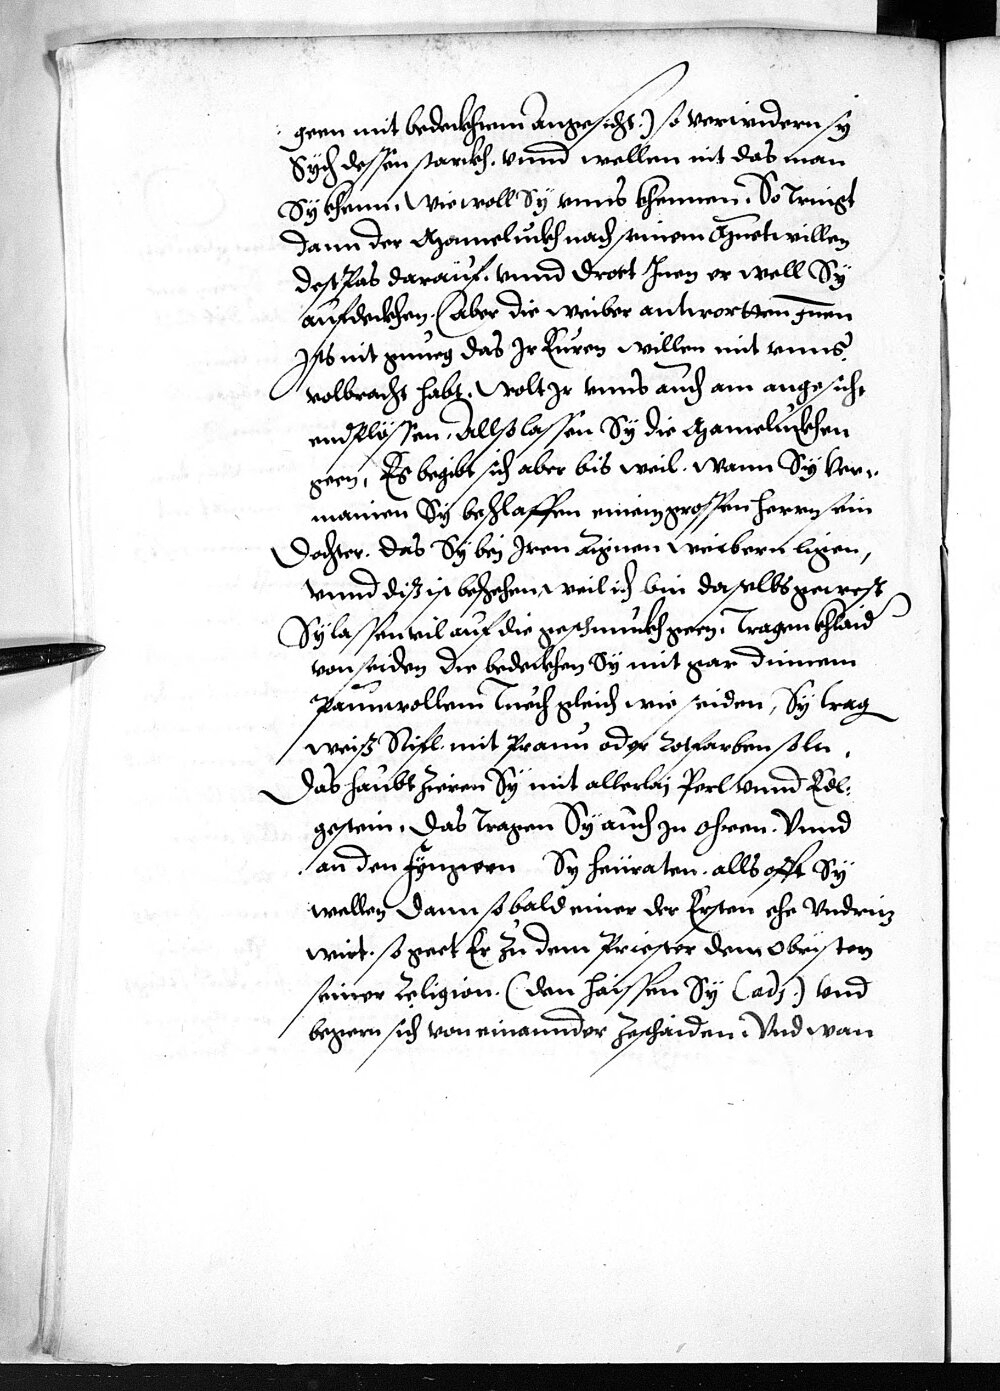 geen mit bedeckhtem angesicht.) so verwidern sy
Sych dessen starckh. vnnd wellen nit das man
Sy khenn. Wiewoll Sy vnns khennen. So dringt
dann der Mameluckh nach seinem Muetwillen
dest bas darauf. vnnd droet Inen er well Sy
aufdeckhen. (aber die weiber antwortten Inen
Ists nit genueg das Ir Euren willen mit vnns
volbracht habt. Wolt Ir vnns auch am angesicht
endplössen. Allso lassen Sy die Mameluckhen
geen. Es begibt sich aber bis weil. wann Sy ver-
mainen Sy beschlaffen einem grossen herrn sein
Dochter. das Sy bey Iren aignen weibern ligen,
vnnd diß ist beschehen weil ich bin daselbs gewest
Sy lassen vil auf die geschmuckh geen. Tragen khlaid
von seiden die bedeckhen Sy mit gar dinnem
Paumwollem Tuech gleich wie seiden, Sy trag
weiß Stifl. mit Praun oder Rotfarben soln.
Das haubt zieren Sy mit allerlaj Perl vnnd Edl-
gestein. Das Tragen Sy auch In ohren. Vnnd
an den fyngern Sy heüraten. alls offt Sy
wellen Dann so bald einer der Ersten ehe Vndrüz
wirt. so geet Er zu dem Priester dem Obristen
seiner Religion. (den haissen Sy Cadj.) vnd
begern sich von einannder zeschaiden. Vnd wan